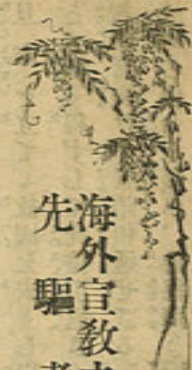 海外宣教
先驅